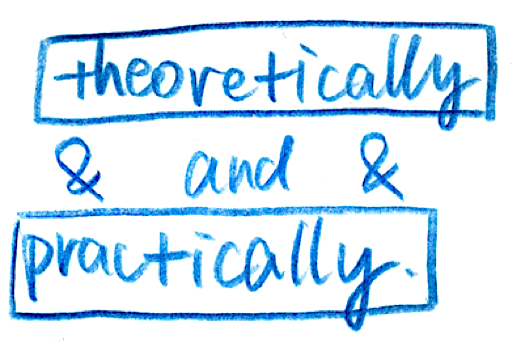 theoretically
& and &
practically.